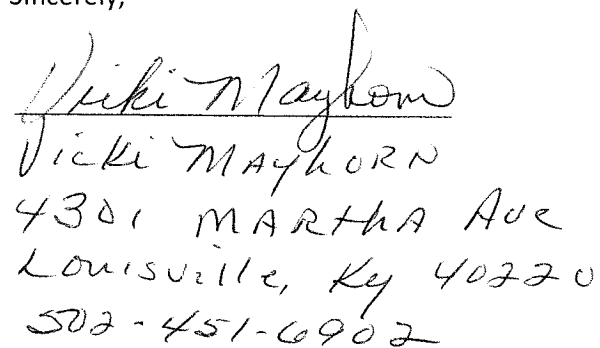 Sincerely,
Vicki Mayhorn
Vicki MAYhORN
4301 MARthA Ave
Louisville, Ky 40220
502-451-6902